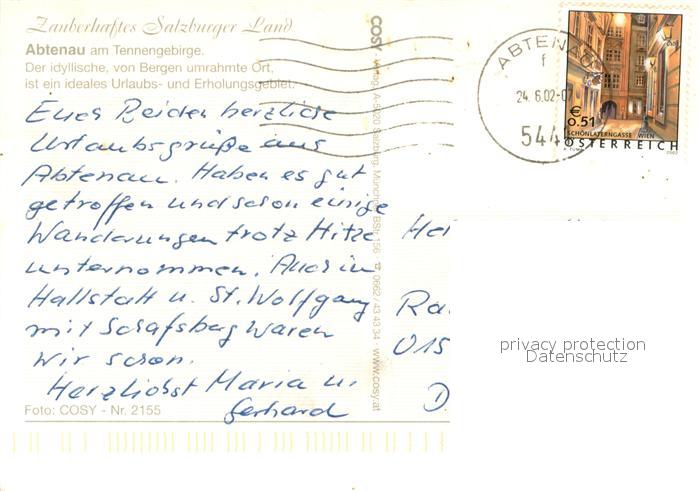 Zauberhaftes Salzburger Land
Abtenau am Tennengebirge.
Der idyllische, von Bergen umrahmte Ort,
ist ein ideales Urlaubs- und Erholungsgebiet.
Euch Beiden herzliche
Urlaubsgrüße aus
Abtenau. Haben es gut
getroffen und schon einige
Wanderungen trotz Hitze
unternommen. Auch in
Hallstatt u. St. Wolfgang
mit Schafsberg waren
wir schon.
Herzlichst Maria u.
Gerhard
Foto: COSY - Nr. 2155
COSY Verlag, A-5020 Salzburg, 0662 / 43 43 34 · www.cosy.at
ABTENAU
f
24. 6.02-07
544
€
0.51
SCHÖNLATERNGASSE WIEN
ÖSTERREICH
2002
015
D
privacy protection
Datenschutz